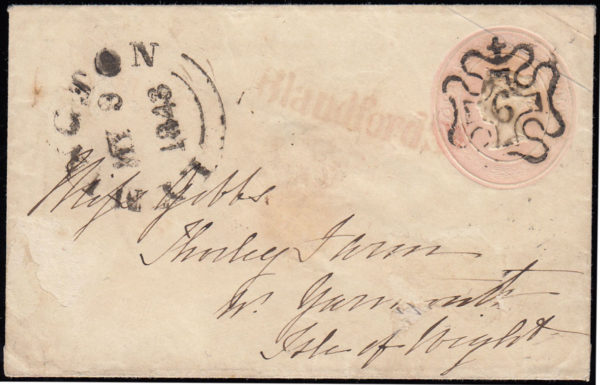 1843
Blandford
6
Miss Gibbs
Thorley Farm
Nr. Yarmouth
Isle of Wight